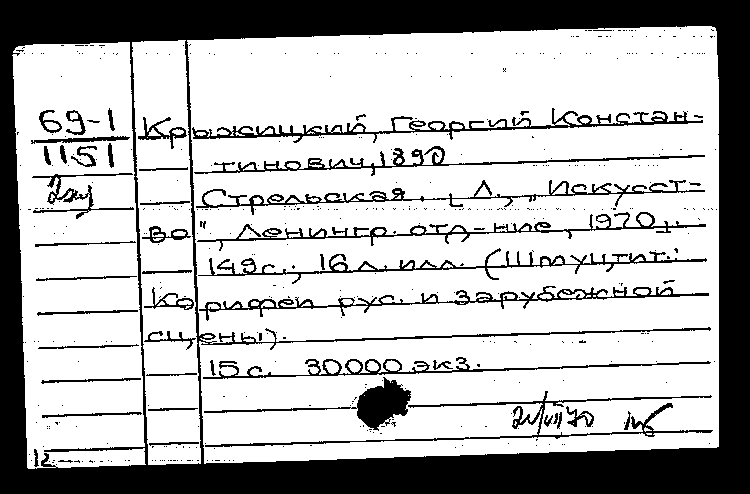 69-1
1151
2 эк
Крыжицкий, Георгий Констан-
тинович, 1890
Стрельская. [Л., „Искусст-
во", Ленингр. отд-ние, 1970].
149 с.; 16 л. илл. (Шмуцтит.:
Корифеи рус. и зарубежной
сцены).
15 с. 30000 экз.
12